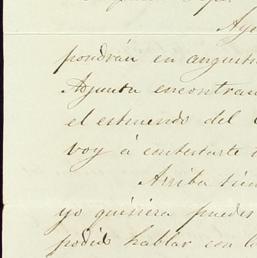 Aye
pondrán en angusti
Adjunta encontrar
el estruendo del
voy á contestarte
Arriba tien
yo quisiera puedes
podid hablar con l